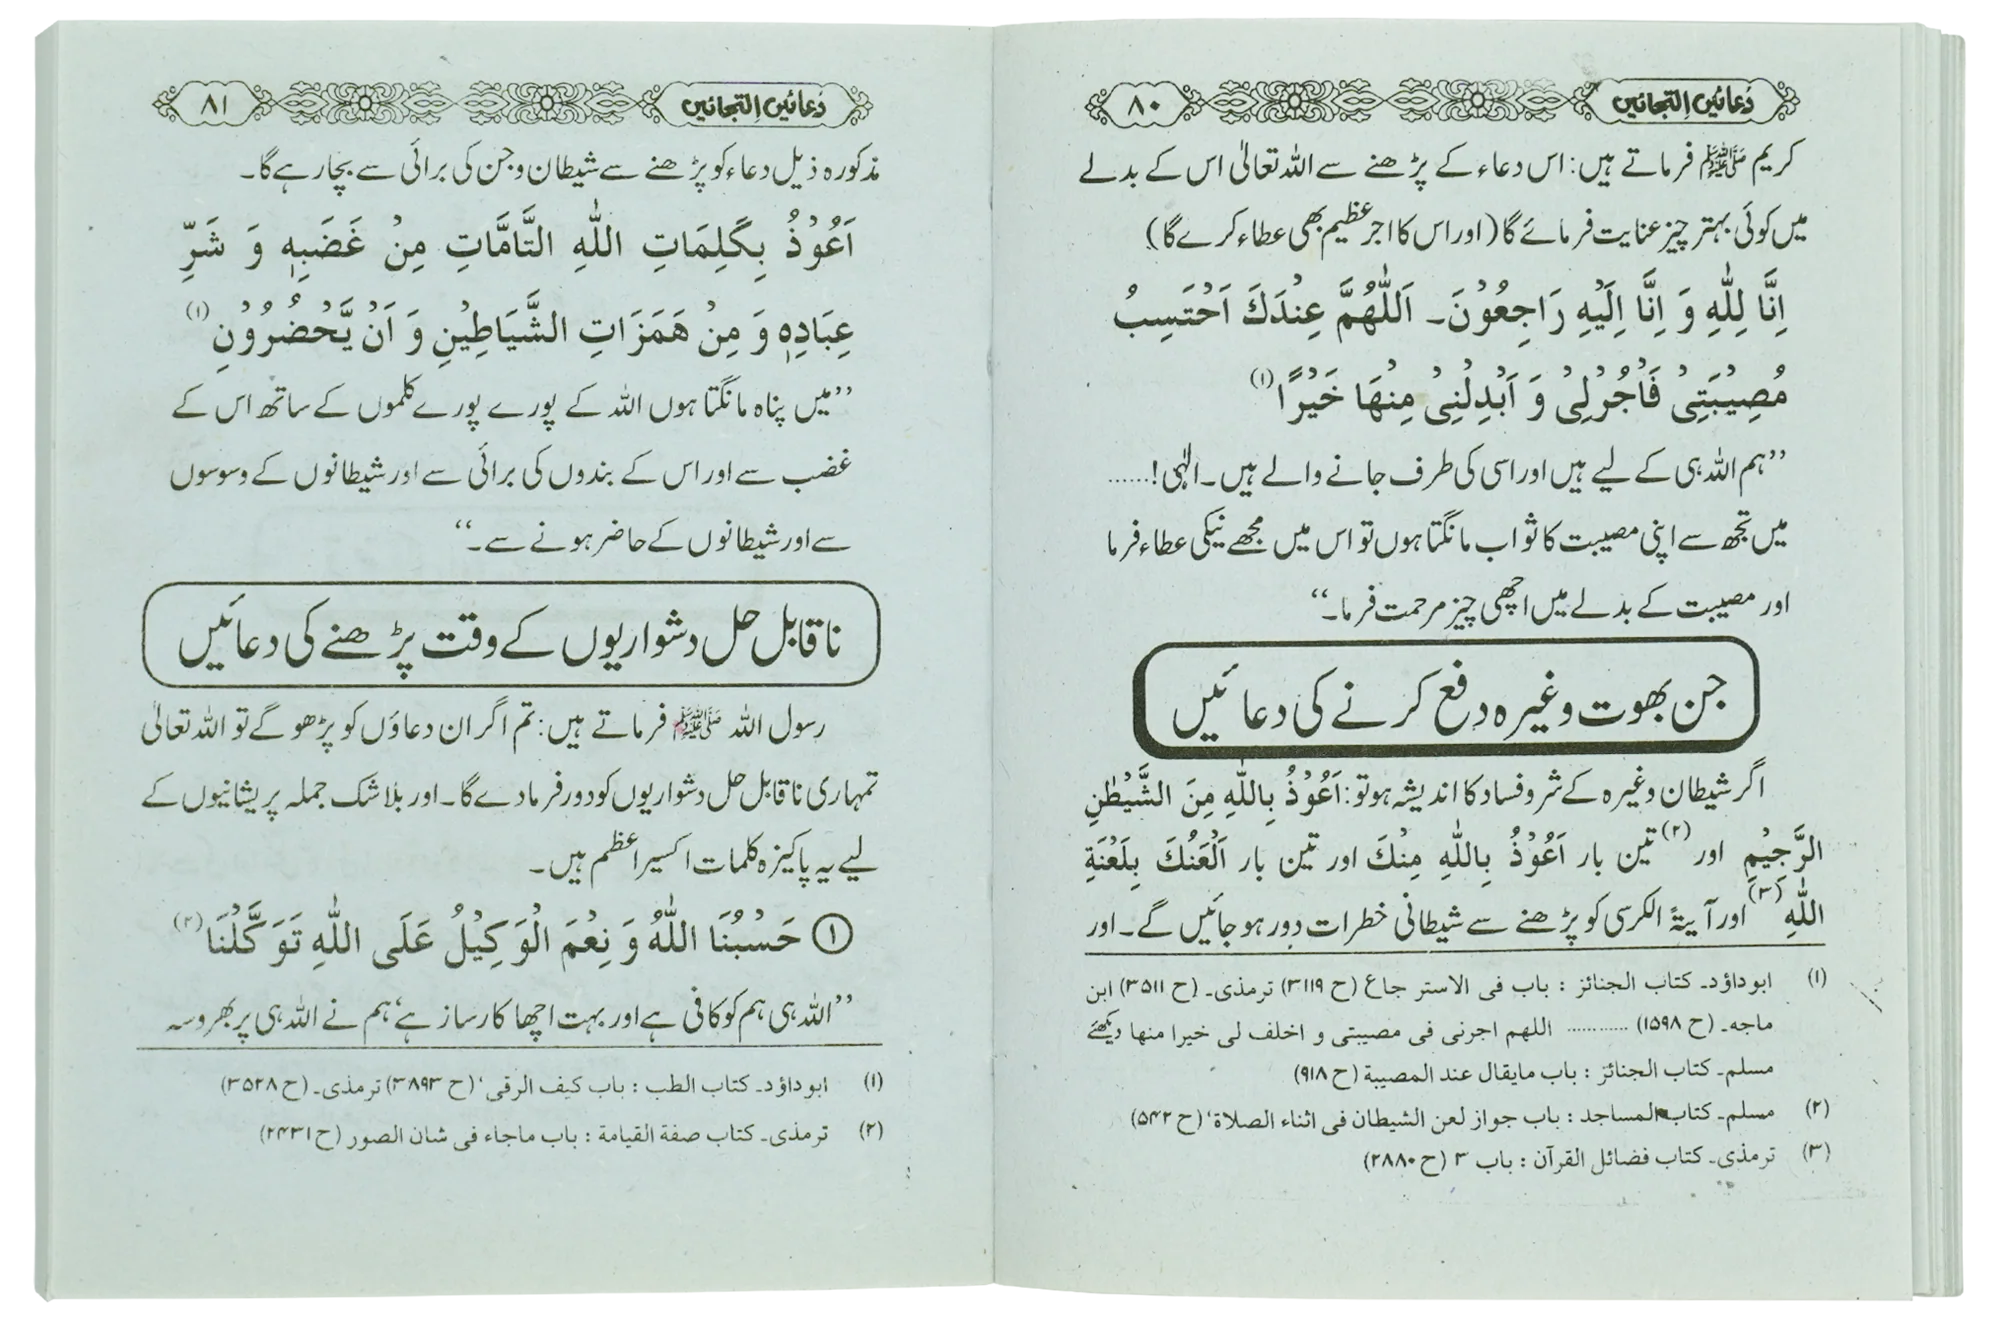 دُعائیں التجائیں ۸۰
کریم ﷺ فرماتے ہیں: اس دعاء کے پڑھنے سے اللہ تعالیٰ اس کے بدلے
میں کوئی بہتر چیز عنایت فرمائے گا (اور اس کا اجر عظیم بھی عطاء کرے گا)
اِنَّا لِلّٰهِ وَ اِنَّا اِلَيْهِ رَاجِعُوْنَ۔ اَللّٰهُمَّ عِنْدَكَ اَحْتَسِبُ
مُصِيْبَتِيْ فَاْجُرْلِيْ وَ اَبْدِلْنِيْ مِنْهَا خَيْرًا (۱)
”ہم اللہ ہی کے لیے ہیں اور اسی کی طرف جانے والے ہیں۔ الٰہی!......
میں تجھ سے اپنی مصیبت کا ثواب مانگتا ہوں تو اس میں مجھے نیکی عطاء فرما
اور مصیبت کے بدلے میں اچھی چیز مرحمت فرما۔“
جن بھوت وغیرہ دفع کرنے کی دعائیں
اگر شیطان وغیرہ کے شر و فساد کا اندیشہ ہو تو: اَعُوْذُ بِاللّٰهِ مِنَ الشَّيْطٰنِ
الرَّجِيْمِ اور (۲) تین بار اَعُوْذُ بِاللّٰهِ مِنْكَ اور تین بار اَلْعَنُكَ بِلَعْنَةِ
اللّٰهِ (۳) اور آیۃ الکرسی کو پڑھنے سے شیطانی خطرات دور ہو جائیں گے۔ اور
(۱) ابوداؤد۔ کتاب الجنائز : باب فی الاستر جاع (ح ۳۱۱۹) ترمذی۔ (ح ۳۵۱۱) ابن
ماجہ۔ (ح ۱۵۹۸) ............ اللهم اجرنی فی مصیبتی و اخلف لی خیرا منها دیکھئے
مسلم۔ کتاب الجنائز : باب مایقال عند المصیبة (ح ۹۱۸)
(۲) مسلم۔ کتاب المساجد : باب جواز لعن الشیطان فی اثناء الصلاة، (ح ۵۴۲)
(۳) ترمذی۔ کتاب فضائل القرآن : باب ۳ (ح ۲۸۸۰)
دُعائیں التجائیں ۸۱
مذکورہ ذیل دعاء کو پڑھنے سے شیطان و جن کی برائی سے بچا رہے گا۔
اَعُوْذُ بِكَلِمَاتِ اللّٰهِ التَّامَّاتِ مِنْ غَضَبِهٖ وَ شَرِّ
عِبَادِهٖ وَ مِنْ هَمَزَاتِ الشَّيَاطِيْنِ وَ اَنْ يَّحْضُرُوْنِ (۱)
”میں پناہ مانگتا ہوں اللہ کے پورے پورے کلموں کے ساتھ اس کے
غضب سے اور اس کے بندوں کی برائی سے اور شیطانوں کے وسوسوں
سے اور شیطانوں کے حاضر ہونے سے۔“
ناقابل حل دشواریوں کے وقت پڑھنے کی دعائیں
رسول اللہ ﷺ فرماتے ہیں: تم اگر ان دعاؤں کو پڑھو گے تو اللہ تعالیٰ
تمہاری ناقابل حل دشواریوں کو دور فرما دے گا۔ اور بلاشک جملہ پریشانیوں کے
لیے یہ پاکیزہ کلمات اکسیر اعظم ہیں۔
① حَسْبُنَا اللّٰهُ وَ نِعْمَ الْوَكِيْلُ عَلَى اللّٰهِ تَوَكَّلْنَا (۲)
”اللہ ہی ہم کو کافی ہے اور بہت اچھا کارساز ہے، ہم نے اللہ ہی پر بھروسہ
(۱) ابوداؤد۔ کتاب الطب : باب کیف الرقی، (ح ۳۸۹۳) ترمذی۔ (ح ۳۵۲۸)
(۲) ترمذی۔ کتاب صفة القیامة : باب ماجاء فی شان الصور (ح ۲۴۳۱)